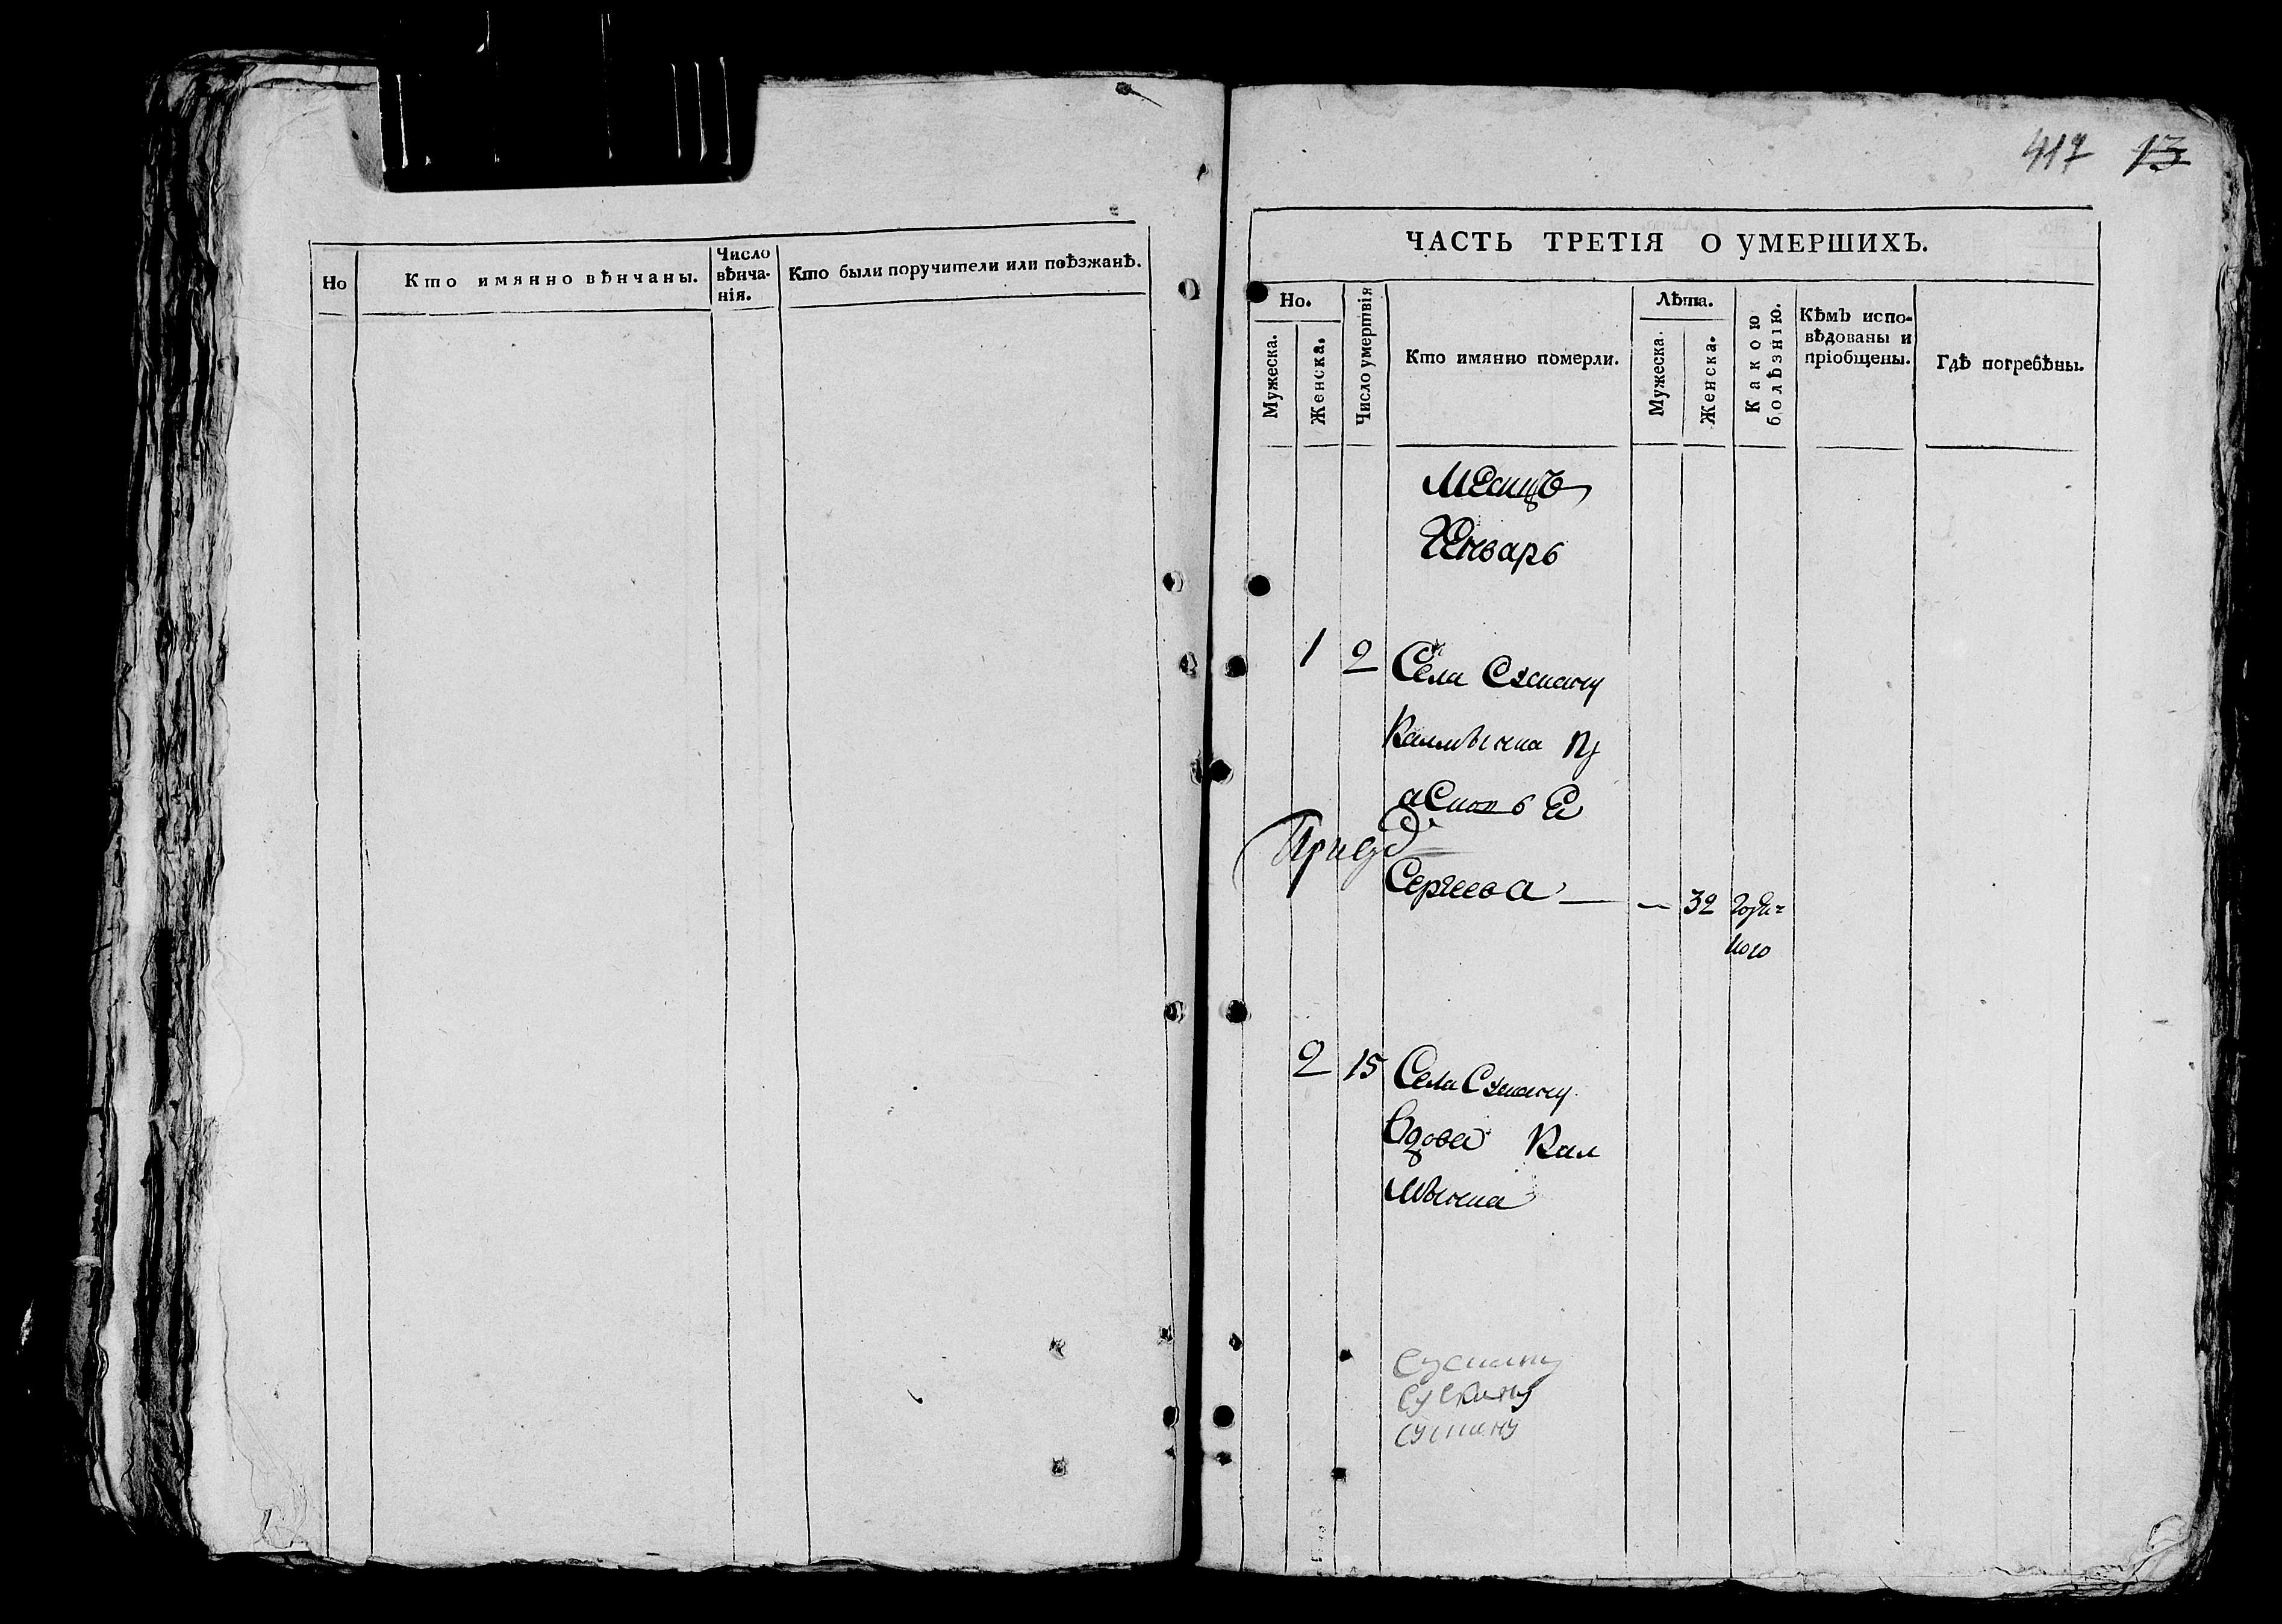 Но
Кто имянно вѣнчаны.
Число
вѣнча-
нія.
Кто были поручители или поѣзжанѣ.
417 13
ЧАСТЬ ТРЕТІЯ О УМЕРШИХЪ.
Но.
Мужеска.
Женска.
Число умертвія
Кто имянно померли.
Лѣта.
Мужеска.
Женска.
Какою
болѣзнію.
Кѣмъ испо-
вѣдованы и
пріобщены.
Гдѣ погребѣны.
Месицъ
Генварь
1 2 Села
Калмыкка
Сергеева — — 32
2 15 Села
Вдова Кал
мыкка